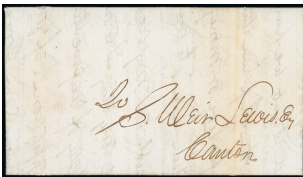 To
S. Weir Lewis, Esq
Canton